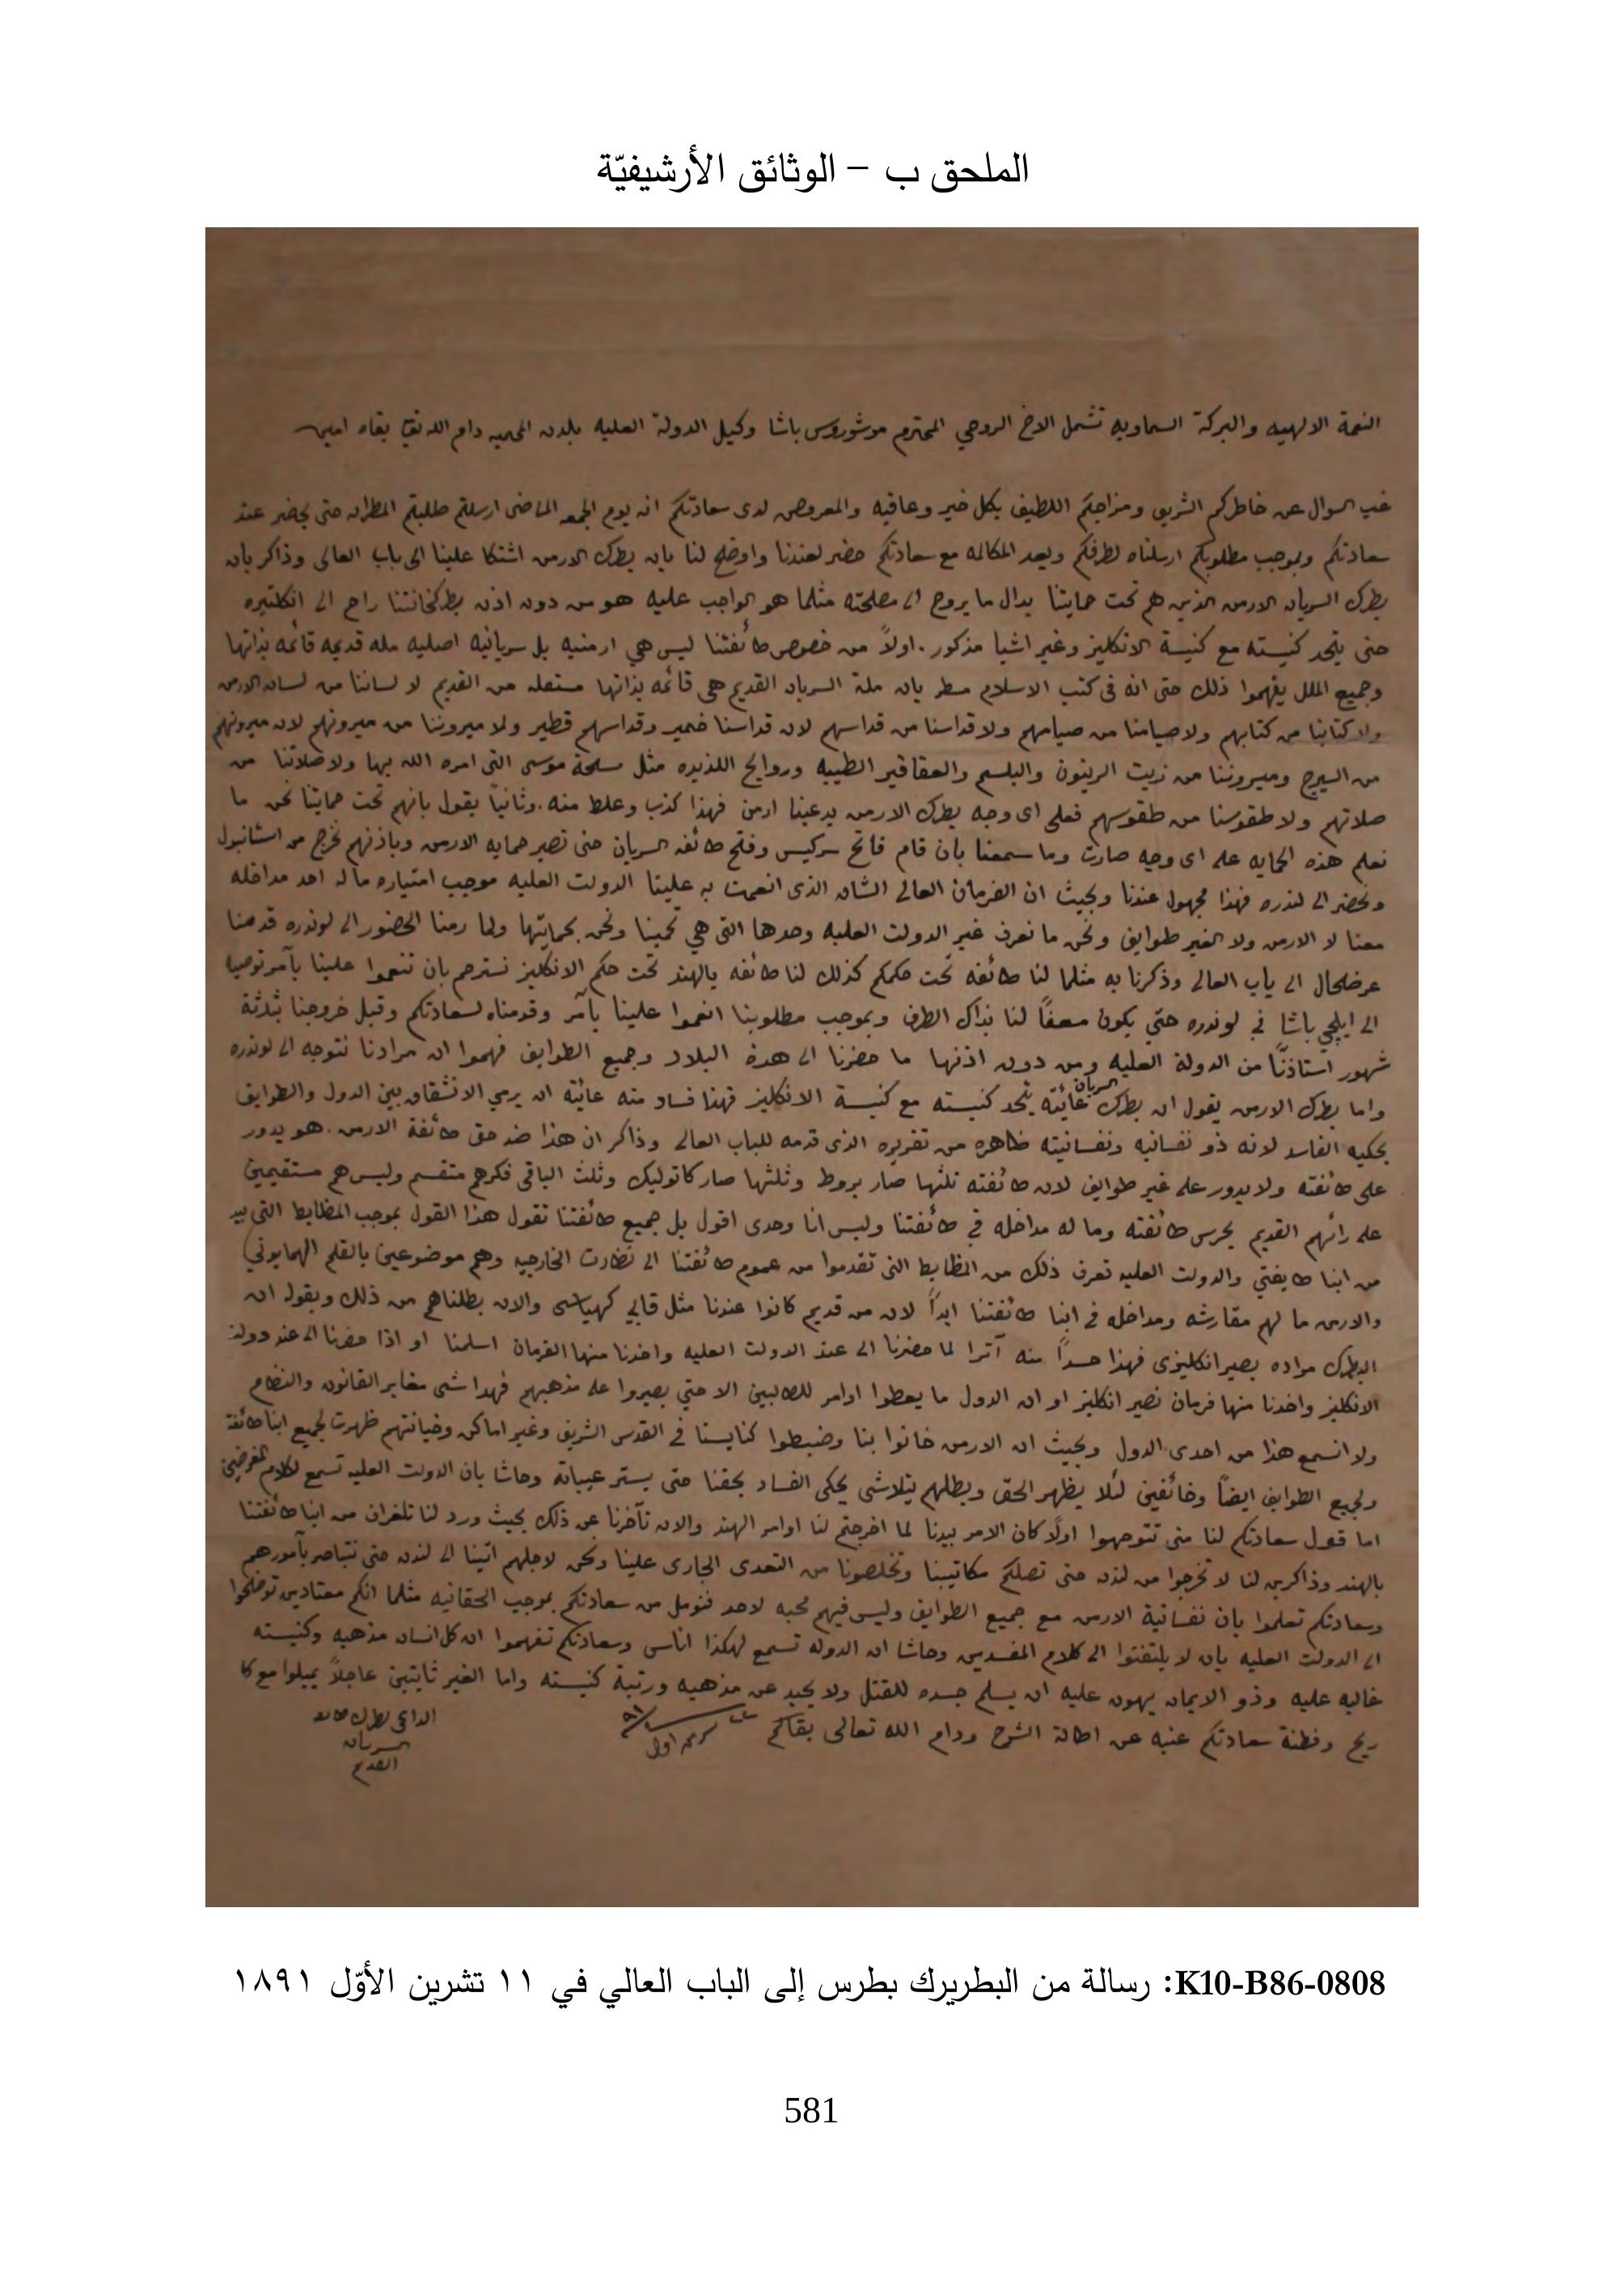 الملحق ب – الوثائق الأرشيفيّة
النعمة الالهيه والبركة السماويه تشمل الاخ الروحي المحترم موشوروس باشا وكيل الدولة العليه بلندن المحميه دام الله بقاه امين
غب السوال عن خاطركم الشريف ومزاجكم اللطيف بكل خير وعافيه والمعروض لدى سعادتكم انه يوم الجمعه الماضى ارسلتم طلبتم المطران حتى يحضر عند
سعادتكم وبموجب مطلوبكم ارسلناه لطرفكم وبعد المكالمه مع سعادتكم حضر لعندنا واوضح لنا بان بطرك الارمن اشتكا علينا الى باب العالى وذاكر بأن
بطرك السريان الارمن الذين هم تحت حمايتنا بدال ما يروح الى مصلحته مثلما هو الواجب عليه هو من دون اذن بطركخانتنا راح الى انكلتيره
حتى يتحد كنيسته مع كنيسة الانكليز وغير اشيا مذكور. اولاً من خصوص طائفتنا ليس هي ارمنيه بل سريانيه اصليه مله قديمه قائمه بذاتها
وجميع الملل يفهموا ذلك حتى انه فى كتب الاسلام مسطر بان ملة السريان القديم هى قائمه بذاتها مستقله من القديم لا لساننا من لسان الارمن
ولا كتابنا من كتابهم ولا صيامنا من صيامهم ولا قداسنا من قداسهم لان قداسنا خمير وقداسهم فطير ولا ميروننا من ميرونهم لان ميرونهم
من السيرج وميروننا من زيت الزيتون والبلسم والعقاقير الطيبه وروايح اللذيذه مثل مسحة موسى التى امره الله بها ولا صلاتنا من
صلاتهم ولا طقوسنا من طقوسهم فعلى اى وجه بطرك الارمن يدعينا ارمن فهذا كذب وغلط منه. وثانياً يقول بانهم تحت حمايتنا نحن ما
نعلم هذه الحمايه على اى وجه صارت وما سمعنا بان قام فاتح سركيس وفتح طائفه السريان حتى تصير حمايه الارمن وباذنهم نخرج من استانبول
ونحضر الى لندره فهذا مجهول عندنا وبحيث ان الفرمان العالى الشان الذى انعمت به علينا الدولت العليه موجب امتيازه ما له احد مداخله
معنا لا الارمن ولا الغير طوايف ونحن ما نعرف غير الدولت العليه وحدها التى هي تحمينا ونحن بحمايتها ولما رمنا الحضور الى لوندره قدمنا
عرضحال الى باب العالى وذكرنا به مثلما لنا طائفه تحت حكمكم كذلك لنا طائفه بالهند تحت حكم الانكليز نسترحم بان تنعموا علينا بآمر توصيا
الى ايلچي باشا في لوندره حتى يكون مسعفاً لنا بذاك الطرف وبموجب مطلوبنا انعموا علينا بآمر وقدمناه لسعادتكم وقبل خروجنا بثلاثة
شهور استاذنّا من الدولة العليه ومن دون اذنها ما حضرنا الى هدة البلاد وجميع الطوايف فهموا ان مرادنا نتوجه الى لوندره
واما بطرك الارمن يقول ان بطرك السريان غايته يتحد كنيسته مع كنيسة الانكليز فهذا فساد منه غايته ان يرمي الانشقاق بين الدول والطوايف
بحكيه الفاسد لانه ذو نفسانيه ونفسانيته ظاهره من تقريره الذى قدمه للباب العالى وذاكر ان هذا ضد حق طائفة الارمن. هو يدور
على طائفته ولا يدور على غير طوايف لان طائفته ثلثها صار بروط وثلثها صار كاتوليك وثلث الباقى فكرهم متقسم وليس هم مستقيمين
على رائهم القديم يحرس طائفته وما له مداخله في طائفتنا وليس انا وحدى اقول بل جميع طائفتنا تقول هذا القول بموجب المظابط التى بيد
من ابنا طايفتي والدولت العليه تعرف ذلك من المظابط التى تقدموا من عموم طائفتنا الى نظارت الخارجيه وهم موضوعين بالقلم الهمايوني
والارمن ما لهم مقارشه ومداخله فى ابنا طائفتنا ابداً لان من قديم كانوا عندنا مثل قاپي كهياسى والان بطلناهم من ذلك ويقول ان
البطرك مراده يصير انكليزى فهذا حسداً منه آترا لما حضرنا الى عند الدولت العليه واخدنا منها الفرمان اسلمنا او اذا حضرنا الى عند دولة
الانكليز واخدنا منها فرمان نصير انكليز او ان الدول ما يعطوا اوامر للطالبين الا حتي يصيروا على مذهبهم فهدا شى مغاير القانون والنظام
ولا انسمع هذا من احدى الدول وبحيث ان الارمن خانوا بنا وضبطوا كنايسنا فى القدس الشريف وغير اماكن وخيانتهم ظهرت لجميع ابنا طائفة
ولجميع الطوايف ايضاً وخائفين لئلا يظهر الحق وبطلهم يتلاشى يحكى الفساد بحقنا حتى يستر عيباته وحاشا بان الدولت العليه تسمع لكلام المغرضين
اما قول سعادتكم لنا متى تتوجهوا اولاً كان الامر بيدنا لما اخرجتم لنا اوامر الهند والان تآخرنا عن ذلك بحيث ورد لنا تلغراف من ابنا طائفتنا
بالهند وذاكرين لنا لا تخرجوا من لندن حتى تصلكم مكاتيبنا وتخلصونا من التعدى الجارى علينا ونحن لاجلهم اتينا الى لندن حتى نتباصر بآمورهم
وسعادتكم تعلموا بان نفسانية الارمن مع جميع الطوايف وليس فيهم محبه لاحد فنومل من سعادتكم بموجب الحقانيه مثلما انكم معتادين توضحوا
الى الدولت العليه بان لا يلتفتوا الى كلام المفسدين وحاشا ان الدوله تسمع لهكذا اناس وسعادتكم تفهموا ان كل انسان مذهبه وكنيسته
غاليه عليه وذو الايمان يهون عليه ان يسلم جسده للقتل ولا يحيد عن مذهبه ورتبة كنيسته واما الغير ثابتين عاجلاً يميلوا مع كل
ريح وفطنة سعادتكم غنيه عن اطالة الشرح ودام الله تعالى بقاكم
الداعى بطرك
السريان
القديم
K10-B86-0808: رسالة من البطريرك بطرس إلى الباب العالي في ١١ تشرين الأوّل ١٨٩١
581